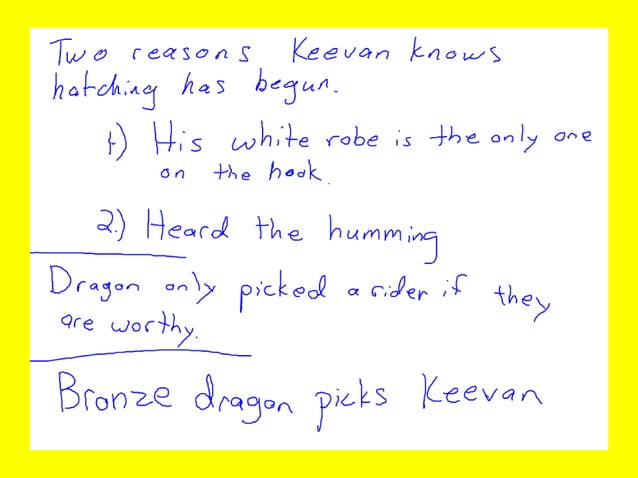 Two reasons Keevan knows
hatching has begun.
1.) His white robe is the only one
on the hook.
2.) Heard the humming
Dragon only picked a rider if they
are worthy.
Bronze dragon picks Keevan